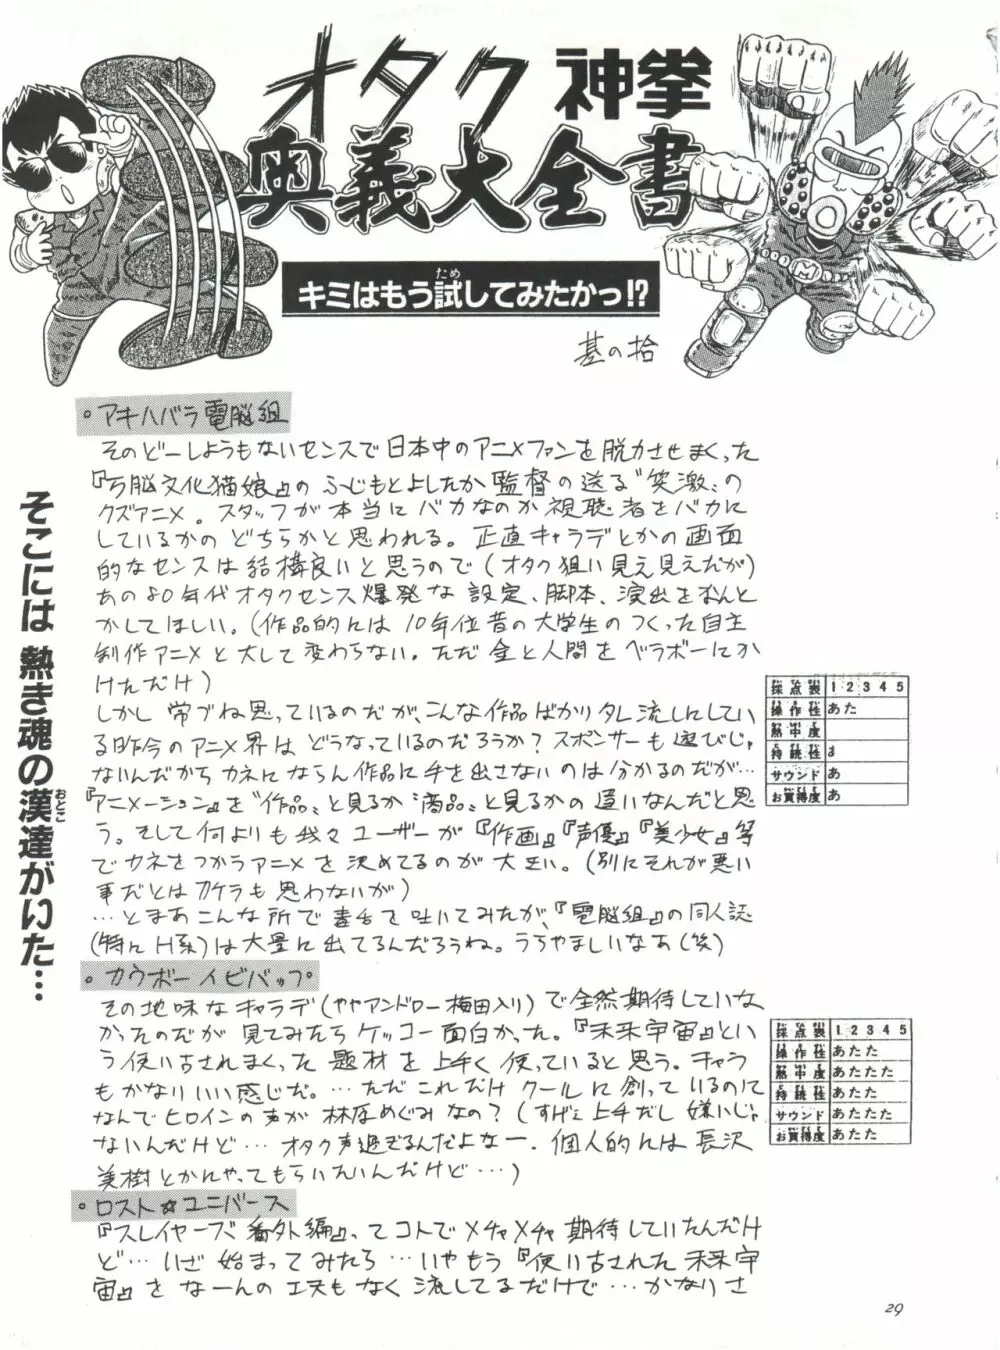 オタク神拳
奥義大全書
キミはもう試してみたかっ!?
ため
其の拾
そこには熱き魂の漢達がいた…
おとこ
。アキハバラ電脳組
そのどーしようもないセンスで日本中のアニメファンを脱力させまくった
『万脳文化猫娘』のふじもとよしたか監督の送る〝笑激〟の
クズアニメ。スタッフが本当にバカなのか視聴者をバカに
しているかのどちらかと思われる。正直キャラデとかの画面
的なセンスは結構良いと思うので(オタク狙い見え見えだが)
あの80年代オタクセンス爆発な設定、脚本、演出をなんと
かしてほしい。(作品的には10年位昔の大学生のつくった自主
制作アニメと大して変わらない。ただ金と人間をベラボーにか
けただけ)
しかし常づね思っているのだが、こんな作品ばかりタレ流しにしてい
る昨今のアニメ界はどうなっているのだろうか?スポンサーも遊びじゃ
ないんだからカネにならん作品に手を出さないのは分かるのだが…
『アニメーション』を〝作品〟と見るか〝商品〟と見るかの違いなんだと思
う。そして何よりも我々ユーザーが『作画』『声優』『美少女』等
でカネをつかうアニメを決めてるのが大きい。(別にそれが悪い
事だとはカケラも思わないが)
…とまあこんな所で毒舌を吐いてみたが、『電脳組』の同人誌
(特にH系)は大量に出てるんだろうね。うらやましいなあ(笑)
採点表 1 2 3 4 5
操作性 あた
熱中度
持続性 あ
サウンド あ
お買得度 あ
。カウボーイビバップ
その地味なキャラデ(ややアンドロー梅田入り)で全然期待していな
かったのだが見てみたらケッコー面白かった。『未来宇宙』とい
う使い古されまくった題材を上手く使っていると思う。キャラ
もかなりいい感じだ。…ただこれだけクールに創っているのに
なんでヒロインの声が林原めぐみなの?(すげェ上手だし嫌いじゃ
ないんだけど…オタク声過ぎるんだよなー.個人的には長沢
美樹とかにやってもらいたいんだけど…)
採点表 1 2 3 4 5
操作性 あたた
熱中度 あたたた
持続性 あたた
サウンド あたたた
お買得度 あたた
。ロスト☆ユニバース
『スレイヤーズ番外編』ってコトでメチャメチャ期待していたんだけ
ど…いざ始まってみたら…いやもう『使い古された未来宇
宙』をなーんの工夫もなく流してるだけで…かなりさ
29